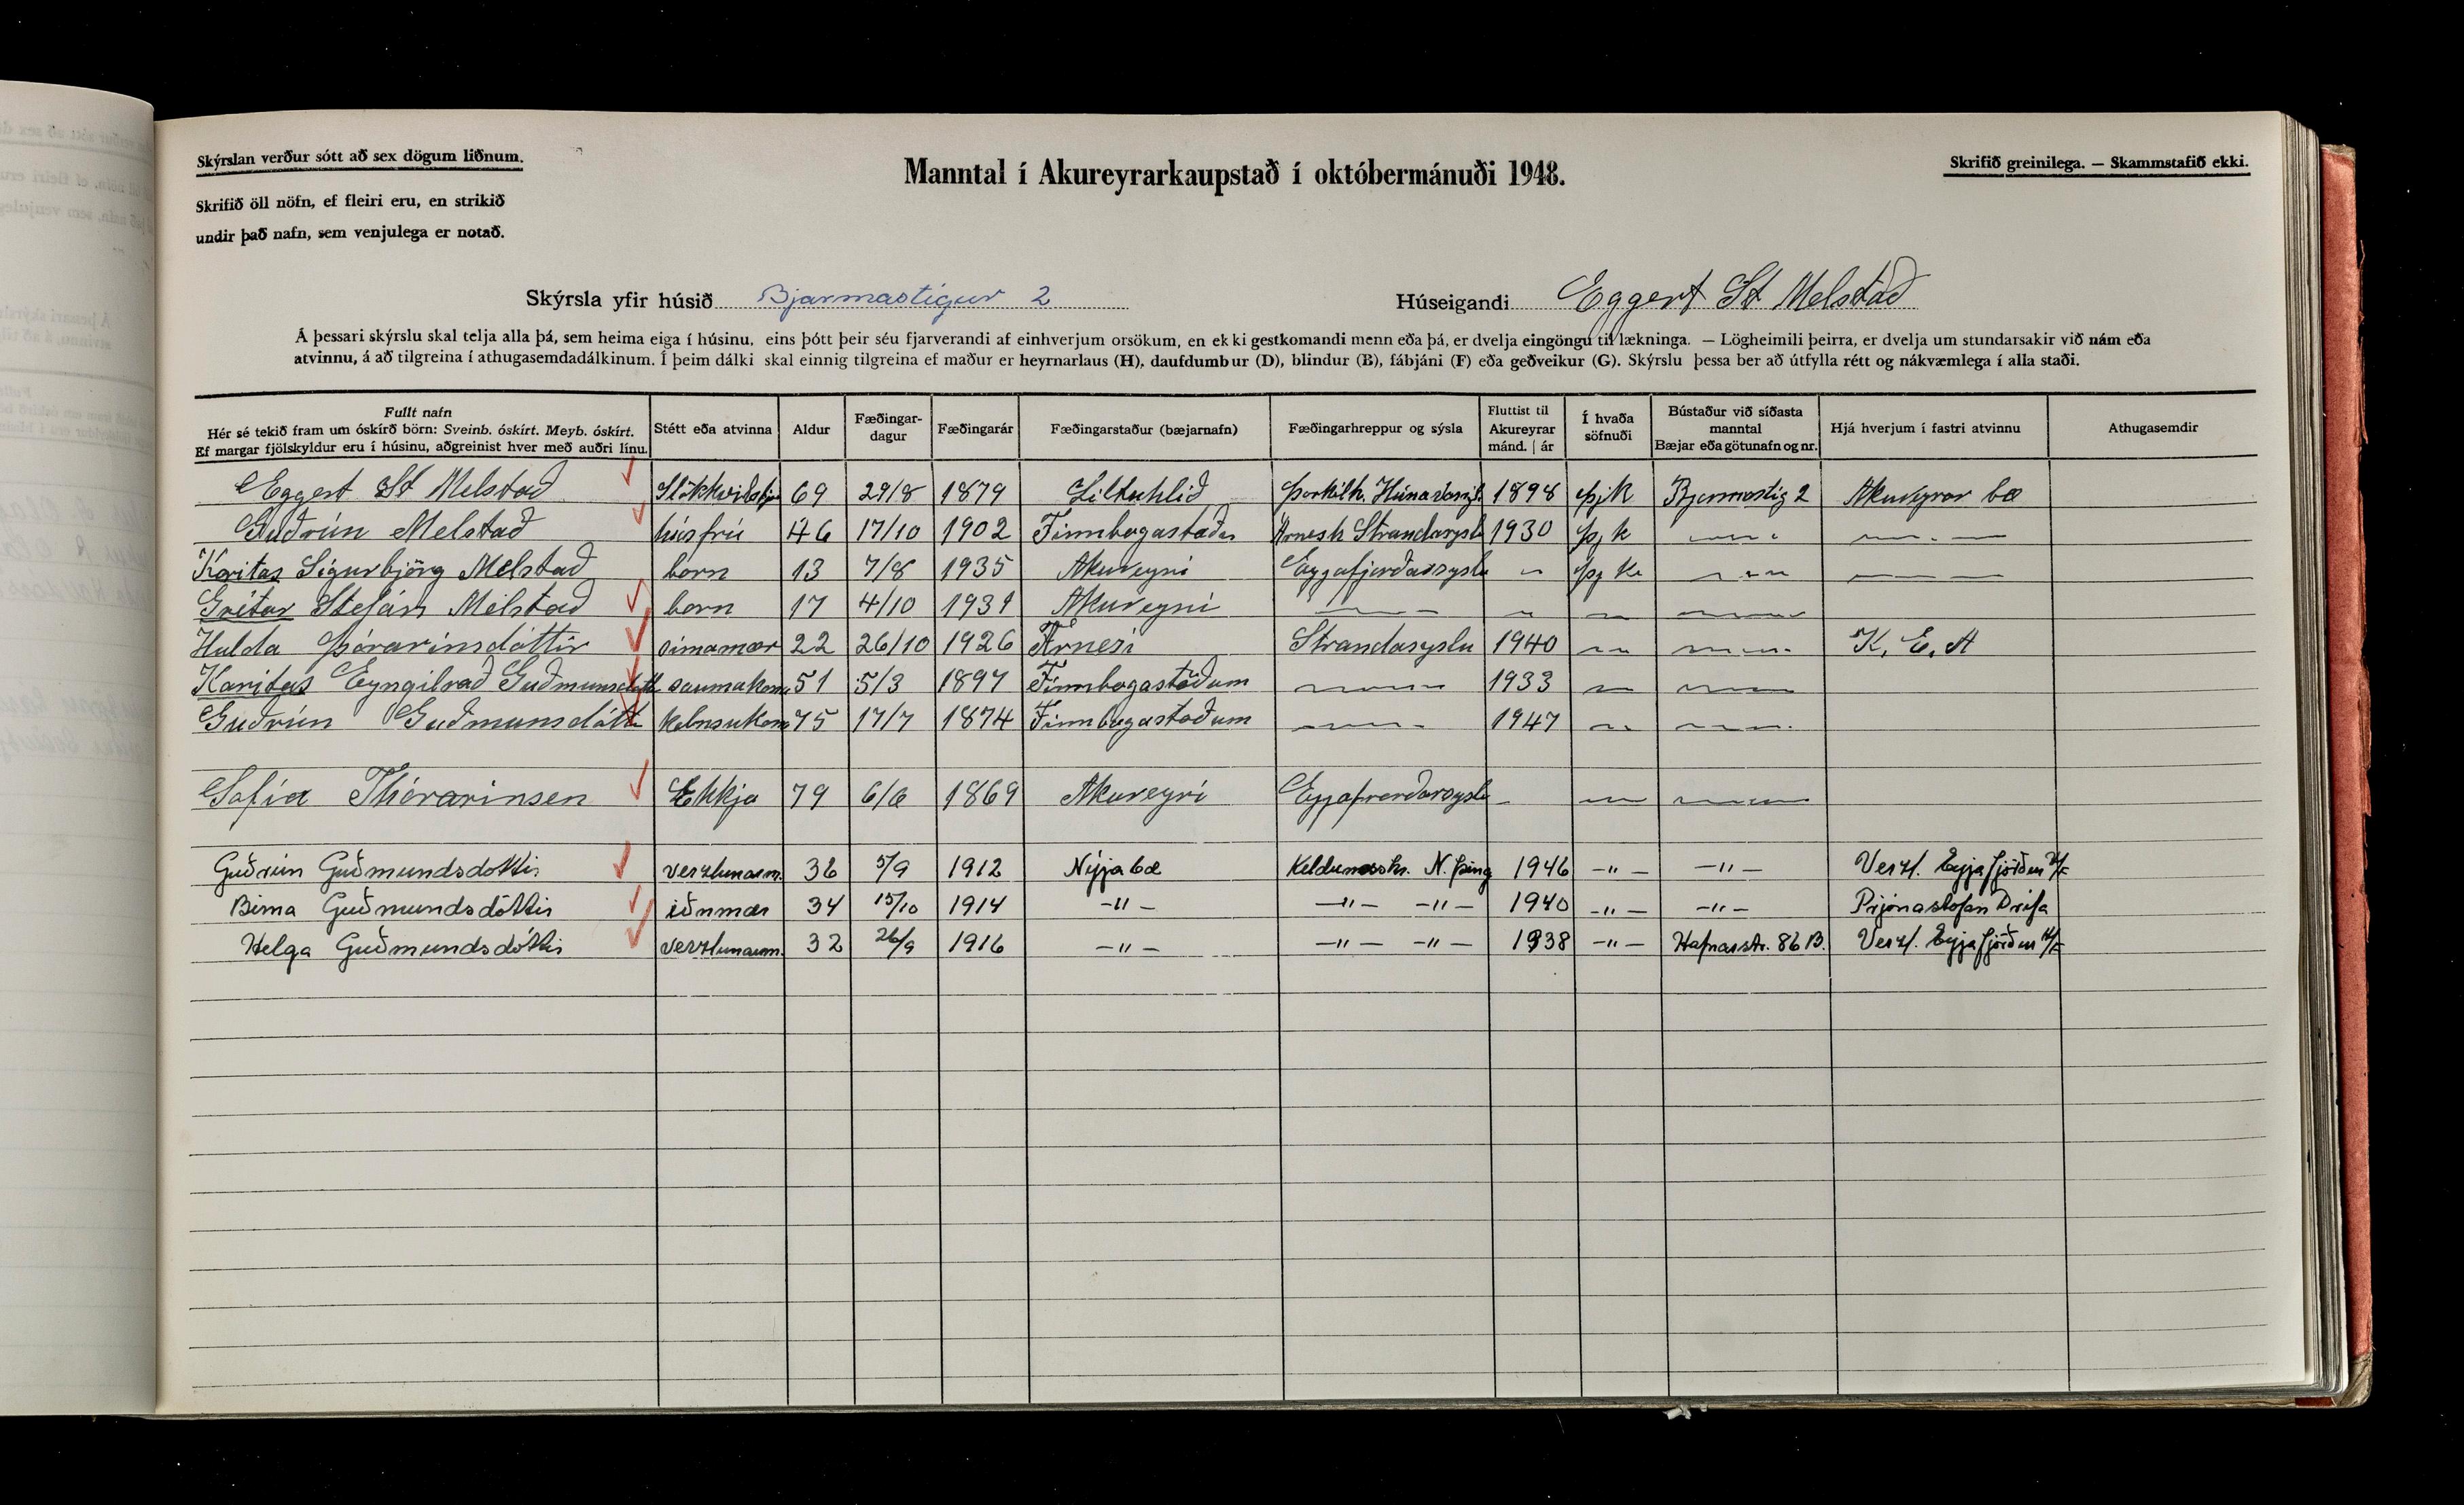 Skýrslan verður sótt að sex dögum liðnum.
Manntal í Akureyrarkaupstað í októbermánuði 1948.
Skrifið greinilega. — Skammstafið ekki.
Skrifið öll nöfn, ef fleiri eru, en strikið
undir það nafn, sem venjulega er notað.
Skýrsla yfir húsið Bjarmastígur 2 Húseigandi Eggert St Melstað
Á þessari skýrslu skal telja alla þá, sem heima eiga í húsinu, eins þótt þeir séu fjarverandi af einhverjum orsökum, en ekki gestkomandi menn eða þá, er dvelja eingöngu til lækninga. — Lögheimili þeirra, er dvelja um stundarsakir við nám eða
atvinnu, á að tilgreina í athugasemdadálkinum. Í þeim dálki skal einnig tilgreina ef maður er heyrnarlaus (H), daufdumbur (D), blindur (B), fábjáni (F) eða geðveikur (G). Skýrslu þessa ber að útfylla rétt og nákvæmlega í alla staði.
Fullt nafn
Hér sé tekið fram um óskírð börn: Sveinb. óskírt. Meyb. óskírt.
Ef margar fjölskyldur eru í húsinu, aðgreinist hver með auðri línu.
Stétt eða atvinna
Aldur
Fæðingar-
dagur
Fæðingarár
Fæðingarstaður (bæjarnafn)
Fæðingarhreppur og sýsla
Fluttist til
Akureyrar
mánd. | ár
Í hvaða
söfnuði
Bústaður við síðasta
manntal
Bæjar eða götunafn og nr.
Hjá hverjum í fastri atvinnu
Athugasemdir
Eggert St Melstað 69 29/8 1879 Litluhlíð Þorkelh. Húnavassýsl 1898 þjk Bjarmastig 2 Akureyrar bæ
Guðrún Melstað húsfrú 46 17/10 1902 Finnbogastaðir Árnesh Strandasýslu 1930 þjk
Karitas Sigurbjörg Melstað born 13 7/8 1935 Akureyri Eyjafjarðarsyslu þjk
Grétar Stefán Melstað born 17 4/10 1931 Akureyri
Hulda Þórarinsdóttir símamær 22 26/10 1926 Árnesi Strandasyslu 1940 K. E. A
Karitas Guðmunsdótti saumakona 51 5/3 1897 Finnbogastöðum 1933
Guðrún Guðmunsdótt 75 17/7 1874 Finnbogastoðum 1947
Sofía Thórarinsen Ekkja 79 6/6 1869 Akureyri Eyjafjarðarsyslu
Guðrún Guðmundsdóttir verzlunarm. 36 5/9 1912 Nýjabæ Keldunessh. N. Þing 1946 -"- -"- Verzl. Eyjafjörður h/f
Birna Guðmundsdóttir iðnmær 34 15/10 1914 -"- -"- -"- 1940 -"- -"- Prjónastofan Drífa
Helga Guðmundsdóttir verzlunarm. 32 26/9 1916 -"- -"- -"- 1938 -"- Hafnarstr. 86 B. Verzl. Eyjafjörður h/f